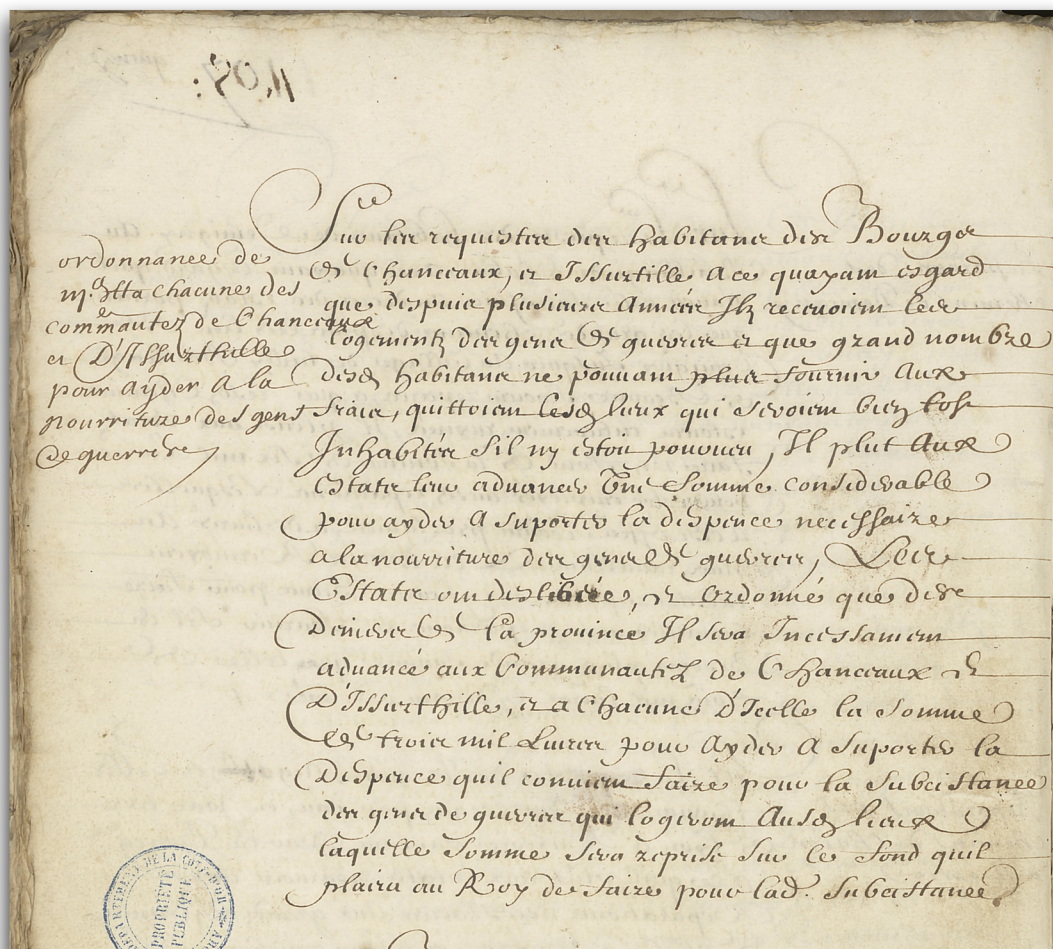 ordonnance de
m.^lt ta chacune des
comm^autez de Chanceaux
et D'Issurthille
pour ayder a la
nourriture des gens
de guerre
Sur les requestes des habitans des Bourgs
de Chanceaux, et Issurtille a ce quayant esgard
que despuis plusieurs Années Ilz recevoient les
logementz des gens de guerre et que grand nombre
desd habitans ne pouvant plus fournir aux
fraiz, quittoient lesd lieux qui seroient bien tost
Inhabités sil ny estoit pourveu, Il plut aux
Estats leur advancer Une Somme considerable
pour ayder a suporter la dispence necessaire
a la nourriture des gens de guerres, Les
Estats ont deslibéré, et Ordonné que des
Deniers de la province Il sera Incessament
advancé aux Communautez de Chanceaux et
D'Issurthille, et a Chacune D'Icelle la Somme
de trois mil Livres pour Ayder a Suporter la
Dispence quil convient faire pour la Subcistance
des gens de guerre qui logeront Ausd lieux
laquelle Somme sera reprise sur le fond quil
plaira au Roy de faire pour lad. Subcistance
DEPARTEMENT DE LA COTE-D'OR
PROPRIÉTÉ
PUBLIQUE